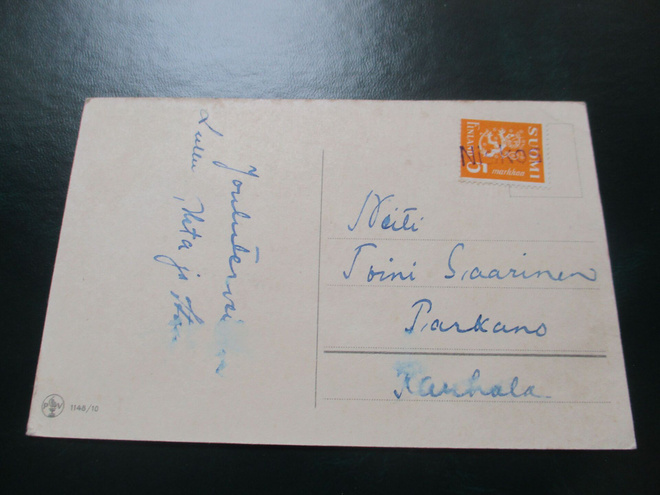 Jouluterv
Lullu, ja
SUOMI
FINLAND
5
markkaa
Neiti
Toini Saarinen
Parkano
Kauhala.
P V
1148/10